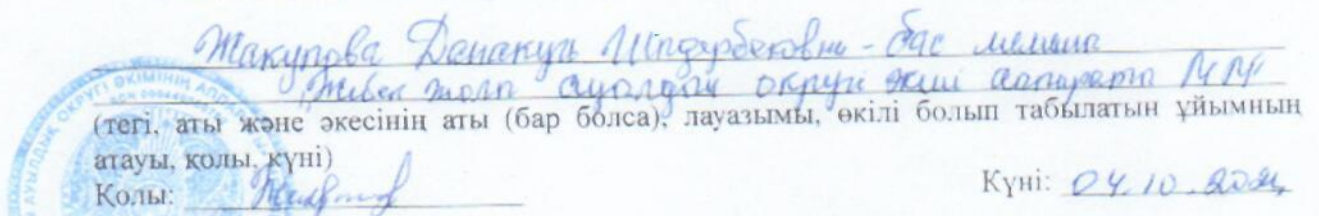 Жакупова Данакуль Шпдербековна - бас маман
Жібек жолы ауылдық округі әкімі аппараты ММ
(тегі, аты және әкесінің аты (бар болса), лауазымы, өкілі болып табылатын ұйымның
атауы, қолы, күні)
Қолы:
Күні: 04.10.2024
АУЫЛДЫҚ ОКРУГІ ӘКІМІНІҢ